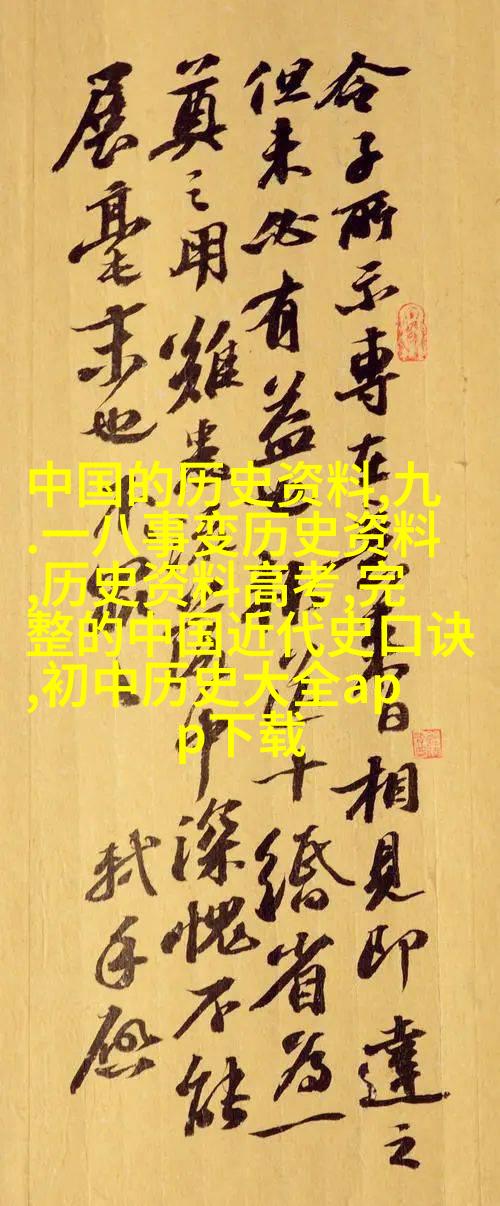 令子所示專在日相見即達之
但未必有益也十縚省為一
奠之用雖中深愧不能
展毫末也不軾手啟
中国的历史资料,九
.一八事变历史资料
,历史资料高考,完
整的中国近代史口诀
,初中历史大全ap
p下载